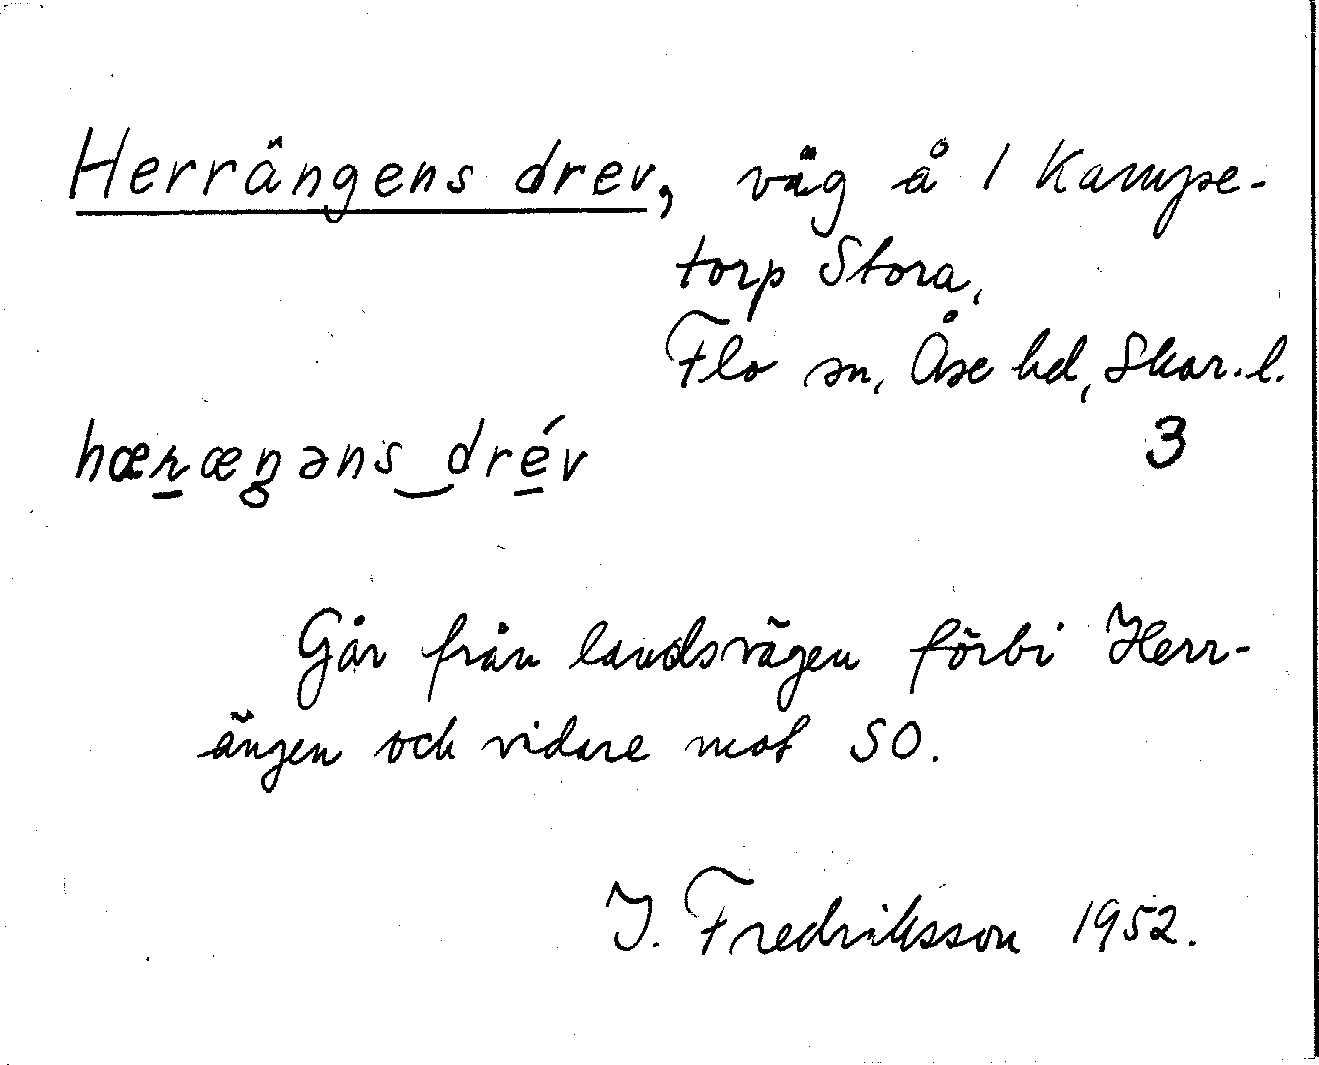 Herrängens drev, väg å 1 Kampe-
torp Stora,
Flo sn, Åse hd, Skar. l.
hæræŋəns‿drév 3
Går från landsvägen förbi Herr-
ängen och vidare mot SO.
I. Fredriksson 1952.